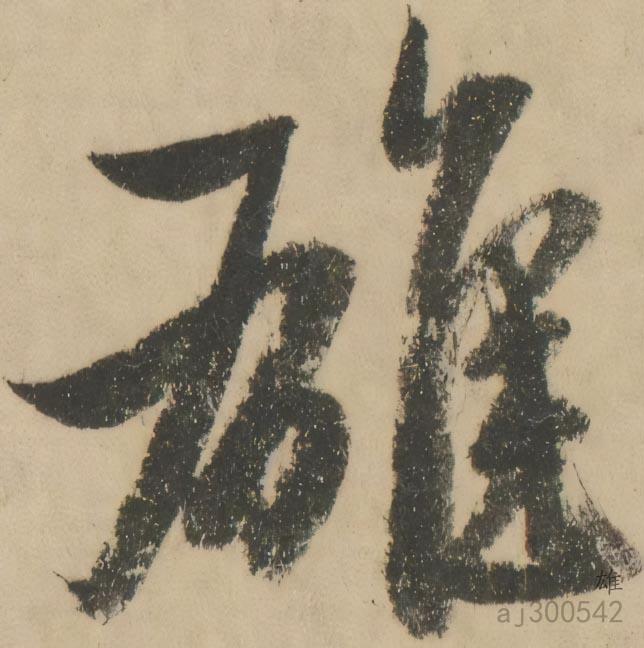 雄
雄
aj300542